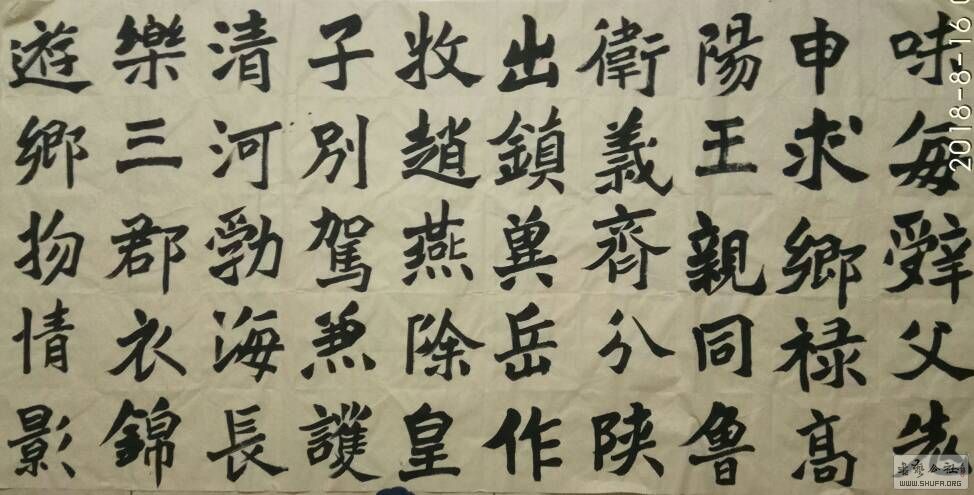 味每辤父先
申求鄉禄高
陽王親同魯
衛義齊分陝
出鎮冀岳作
牧趙燕除皇
子別駕兼護
清河勃海長
樂三郡衣錦
遊鄉物情影
2018-8-16
WWW.SHUFA.ORG